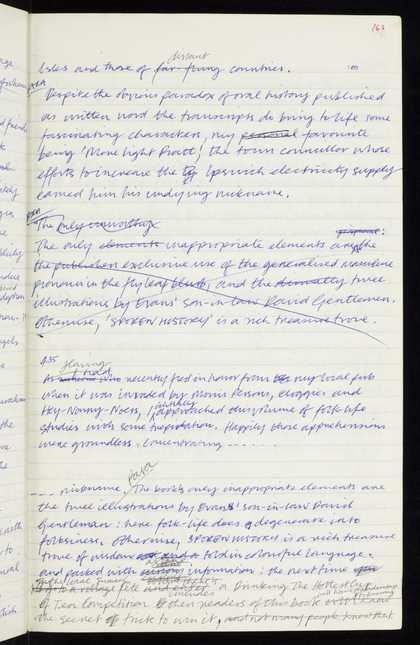 163
distant
Isles and those of far-flung countries.
Despite the obvious paradox of oral history published
as written word the transcripts do bring to life some
fascinating characters, my personal favourite
being 'More Light Pratt', the town councillor whose
efforts to increase the Ipswich electricity supply
earned him his undying nickname.
The only unworthy
The only elements inappropriate elements are the
the publisher's exclusive use of the generalised masculine
pronoun in the flyleaf blurb, and the twee
illustrations by Evans' son-in-law David Gentleman.
Otherwise, 'SPOKEN HISTORY' is a rich treasure trove.
Having
As recently fled in horror from my local pub
when it was invaded by Morris Persons, cloggies and
Hey-Nonny-Noers, I approached this volume of folk-life
studies with some trepidation. Happily those apprehensions
were groundless. Concentrating - - - - -
- - - nickname. The book's only inappropriate elements are
the twee illustrations by Evans' son-in-law David
Gentleman: here folk-life does degenerate into
folksiness. Otherwise, SPOKEN HISTORY is a rich treasure
trove of wisdom told in colourful language,
and packed with information: the next time
a village fete includes a Drinking The Hottest Cup
of Tea Competition then readers of this book will know
the secret trick to win it, and not many people know that